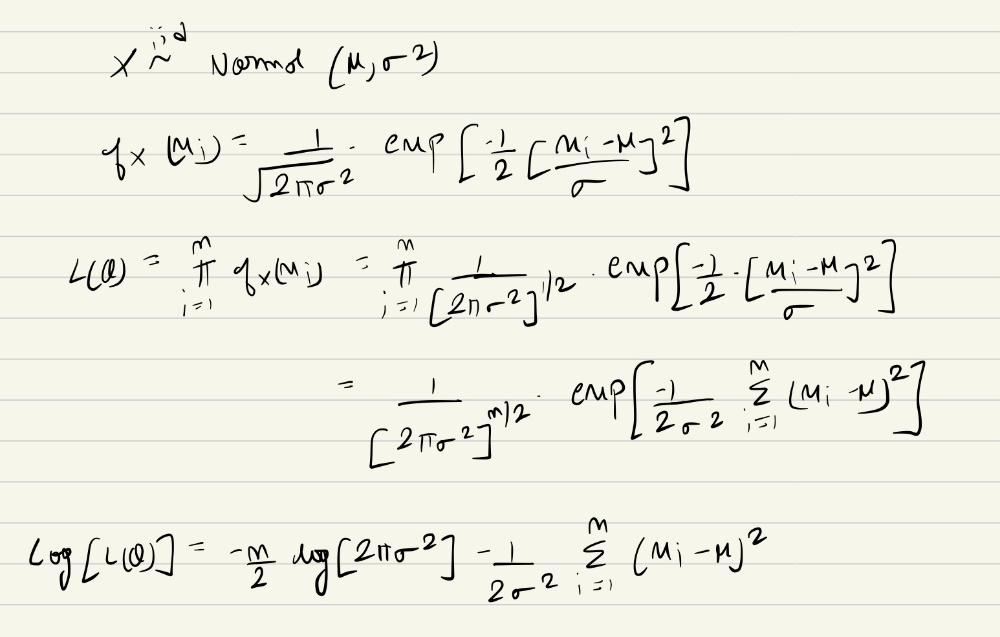 X ~^{iid} Normal (μ, σ²)
f_X (x_i) = 1/√(2πσ²) · exp [ -1/2 [ (x_i - μ)/σ ]² ]
L(θ) = ∏_{i=1}^{n} f_X(x_i) = ∏_{i=1}^{n} 1/[2πσ²]^{1/2} · exp [ -1/2 · [ (x_i - μ)/σ ]² ]
= 1/[2πσ²]^{n/2} · exp [ -1/(2σ²) ∑_{i=1}^{n} (x_i - μ)² ]
Log [L(θ)] = -n/2 log [2πσ²] - 1/(2σ²) ∑_{i=1}^{n} (x_i - μ)²